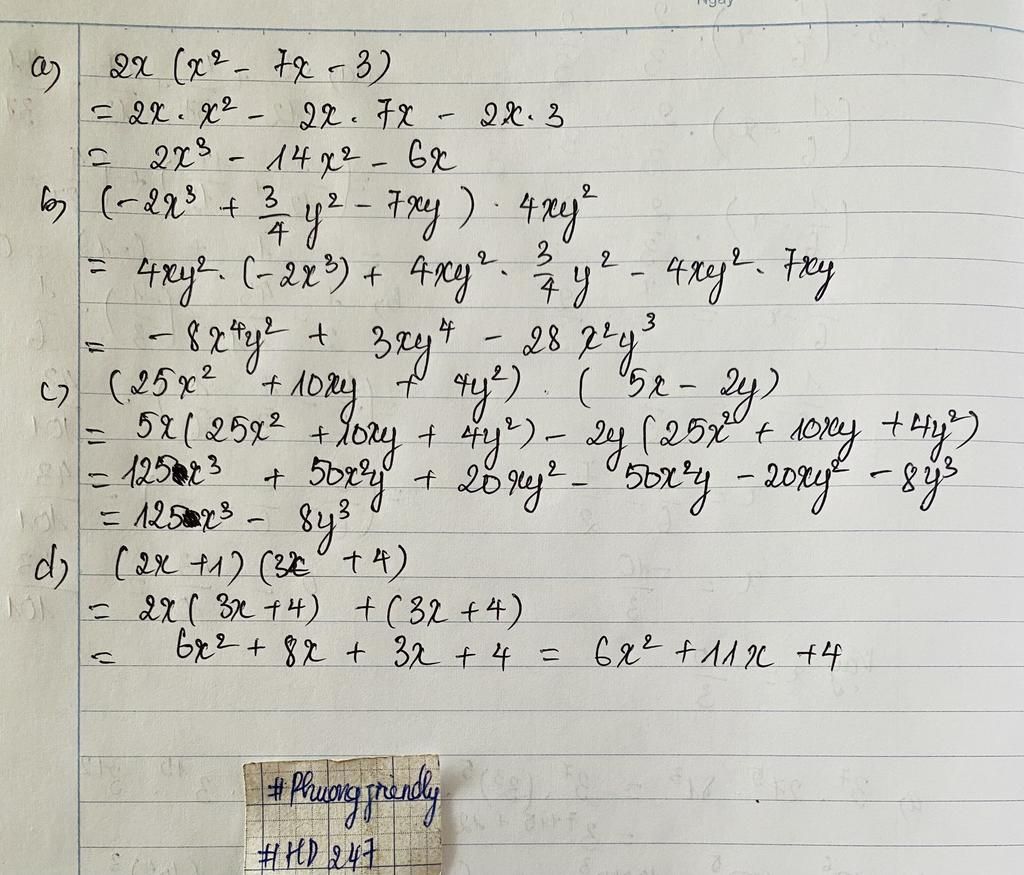 Ngày
a) 2x (x² - 7x - 3)
= 2x . x² - 2x . 7x - 2x . 3
= 2x³ - 14x² - 6x
b) (-2x³ + 3/4 y² - 7xy) . 4xy²
= 4xy² . (-2x³) + 4xy² . 3/4 y² - 4xy² . 7xy
= -8x⁴y² + 3xy⁴ - 28x²y³
c) (25x² + 10xy + 4y²) . (5x - 2y)
= 5x(25x² + 10xy + 4y²) - 2y(25x² + 10xy + 4y²)
= 125x³ + 50x²y + 20xy² - 50x²y - 20xy² - 8y³
= 125x³ - 8y³
d) (2x + 1)(3x + 4)
= 2x(3x + 4) + (3x + 4)
= 6x² + 8x + 3x + 4 = 6x² + 11x + 4
#Phuongfriendly
#HD247